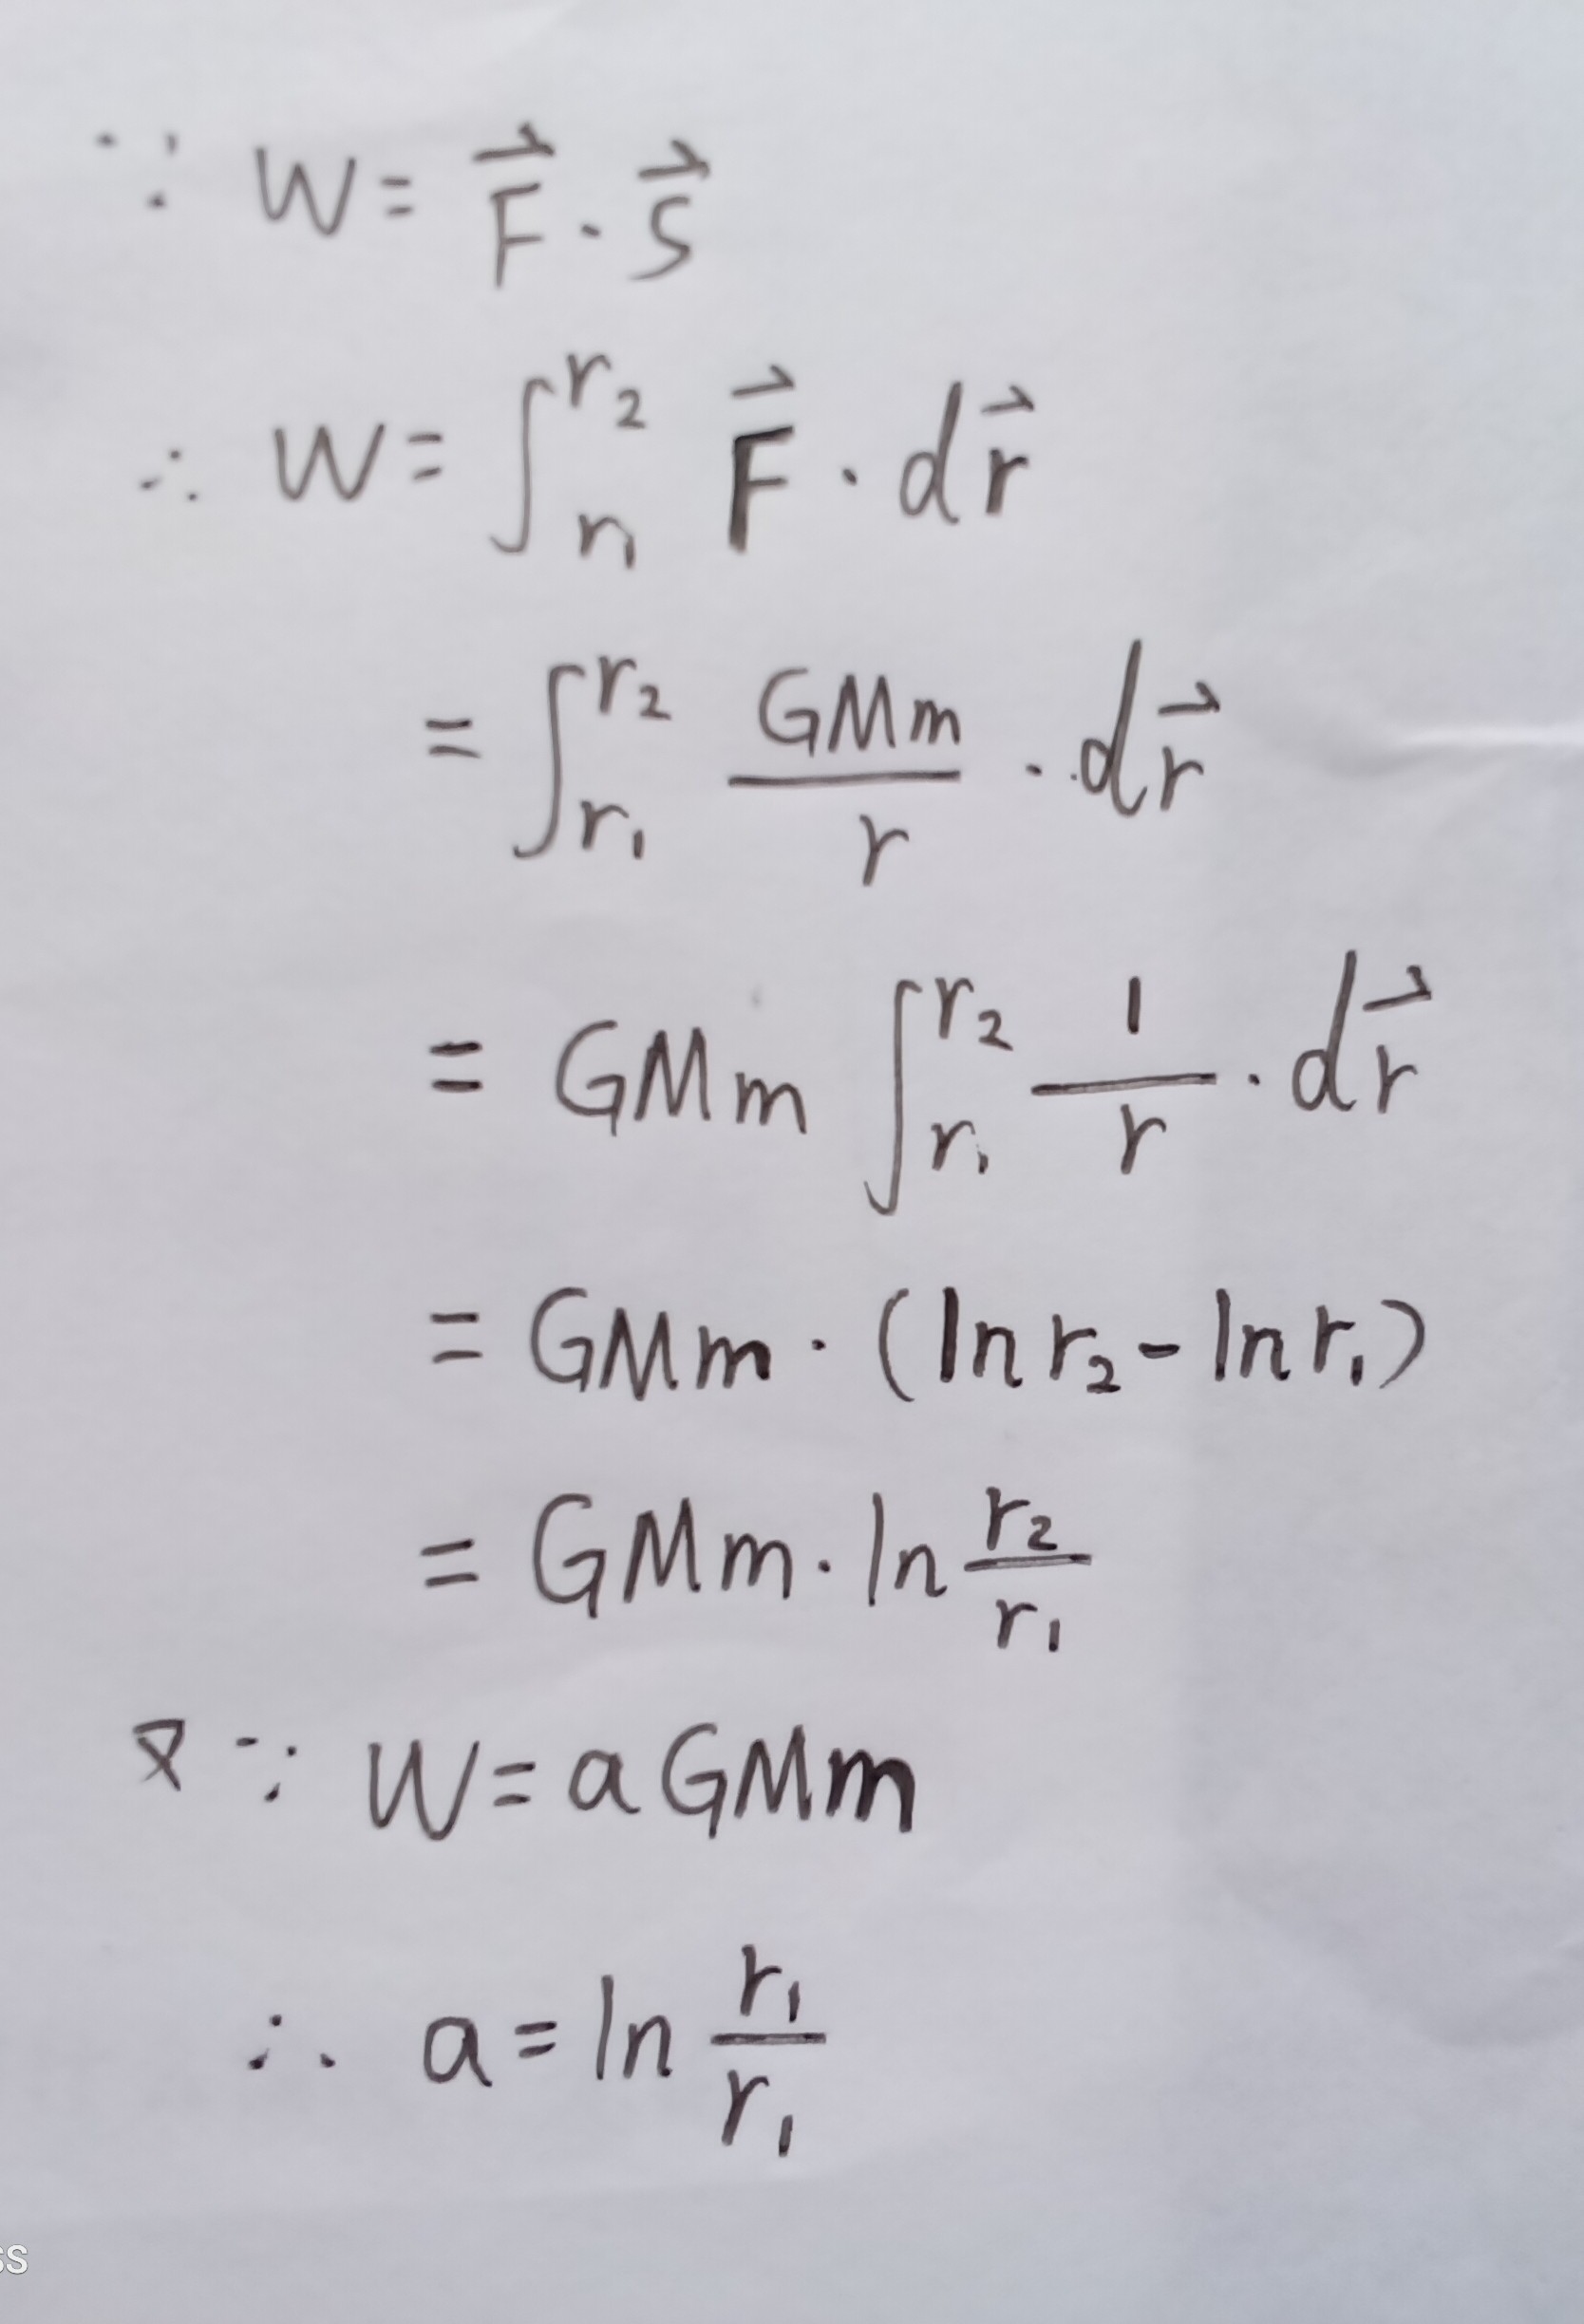 ∵ W = F⃗ · S⃗
∴ W = ∫_{r₁}^{r₂} F⃗ · dr⃗
= ∫_{r₁}^{r₂} GMm/r · dr⃗
= GMm ∫_{r₁}^{r₂} 1/r · dr⃗
= GMm · (ln r₂ - ln r₁)
= GMm · ln r₂/r₁
又 ∵ W = a GMm
∴ a = ln r₁/r₁
ss